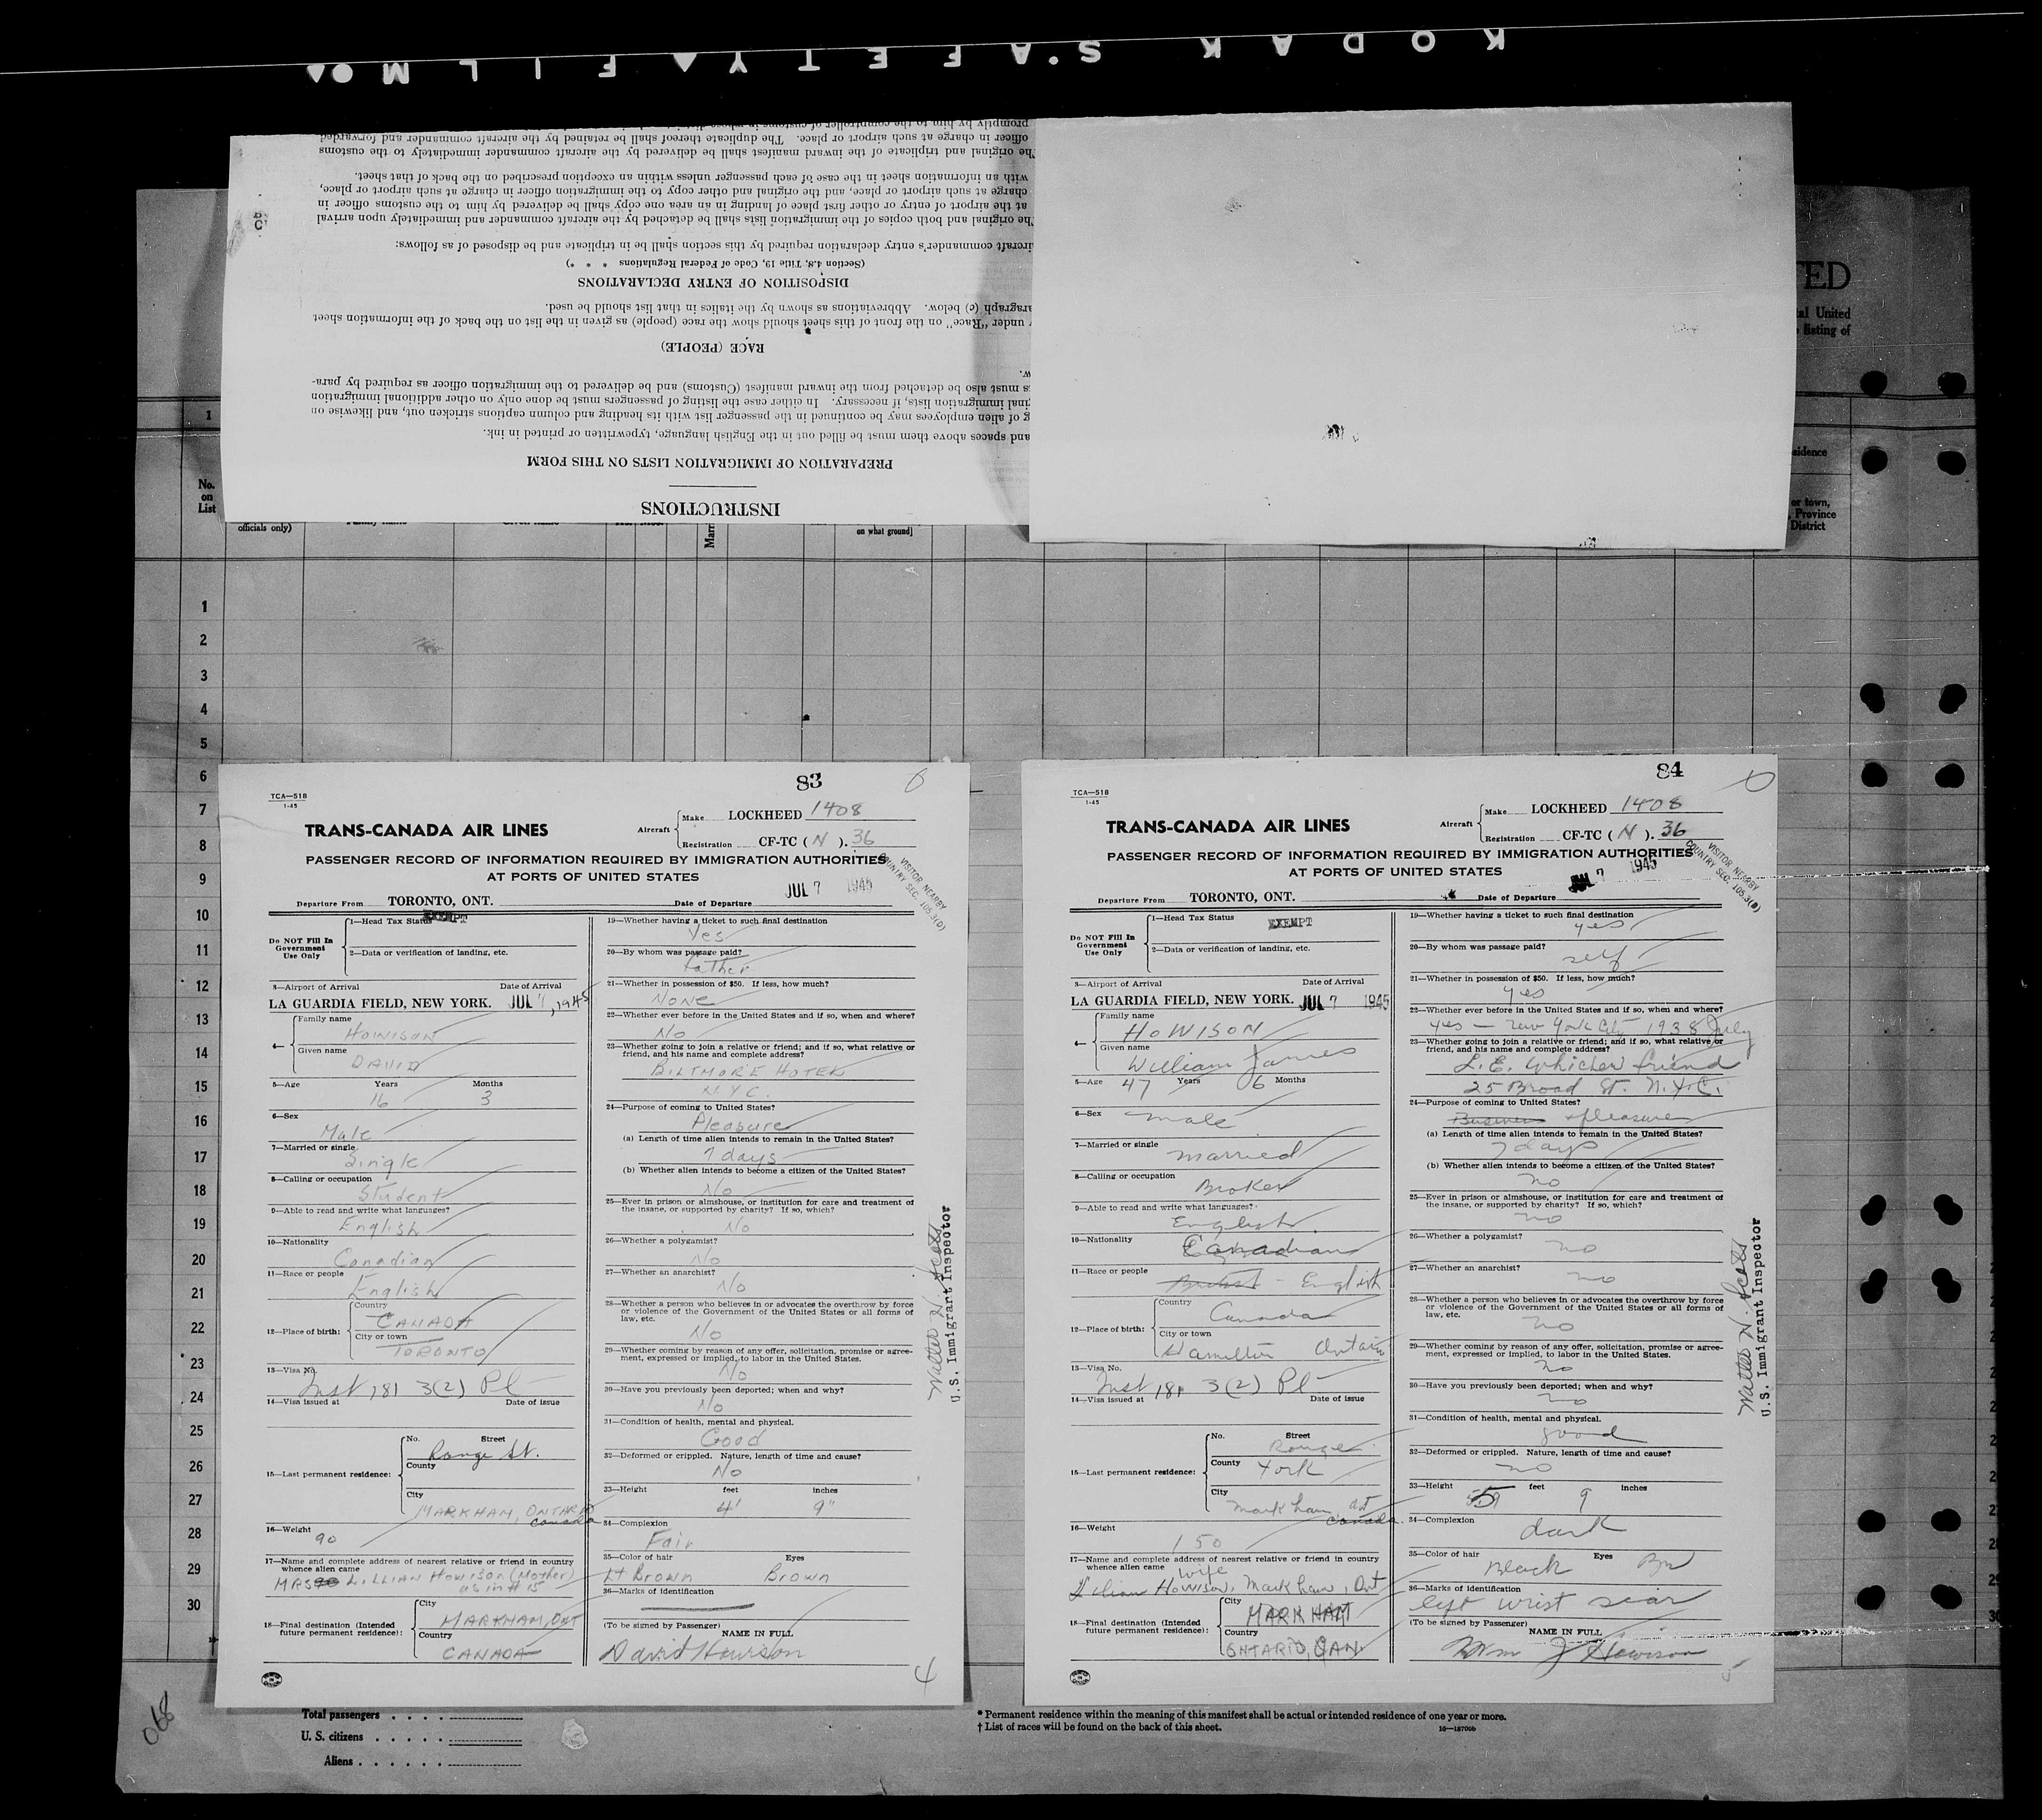 KODAK SAFETY FILM
INSTRUCTIONS
PREPARATION OF IMMIGRATION LISTS ON THIS FORM
and spaces above them must be filled out in the English language, typewritten or printed in ink.
g of alien employees may be continued in the passenger list with its heading and column captions stricken out, and likewise on
ginal immigration lists, if necessary. In either case the listing of passengers must be done only on other additional immigration
s must also be detached from the inward manifest (Customs) and be delivered to the immigration officer as required by para-
w.
RACE (PEOPLE)
y under "Race" on the front of this sheet should show the race (people) as given in the list on the back of the information sheet
aragraph (c) below. Abbreviations as shown by the italics in that list should be used.
DISPOSITION OF ENTRY DECLARATIONS
(Section 4.8, Title 19, Code of Federal Regulations * * *)
ircraft commander's entry declaration required by this section shall be in triplicate and be disposed of as follows:
he original and both copies of the immigration lists shall be detached by the aircraft commander and immediately upon arrival
at the airport of entry or other first place of landing in an area one copy shall be delivered by him to the customs officer in
charge at such airport or place, and the original and other copy to the immigration officer in charge at such airport or place,
with an information sheet in the case of each passenger unless within an exception prescribed on the back of that sheet.
he original and triplicate of the inward manifest shall be delivered by the aircraft commander immediately to the customs
officer in charge at such airport or place. The duplicate thereof shall be retained by the aircraft commander and forwarded
promptly by him to the comptroller of customs
TED
al United
listing of
1
No. on List
officials only)
on what ground]
sidence
or town,
Province
District
1
2
3
4
5
6
7
8
9
10
11
12
13
14
15
16
17
18
19
20
21
22
23
24
25
26
27
28
29
30
83
TCA—518
1-45
TRANS-CANADA AIR LINES
Aircraft
Make LOCKHEED 1408
Registration CF-TC ( N ). 36
PASSENGER RECORD OF INFORMATION REQUIRED BY IMMIGRATION AUTHORITIES
AT PORTS OF UNITED STATES
VISITOR NEARBY
COUNTRY SEC. 105.3(D)
JUL 7 1945
Departure From TORONTO, ONT. Date of Departure
Do NOT Fill In Government Use Only
1—Head Tax Status EXEMPT
2—Data or verification of landing, etc.
3—Airport of Arrival Date of Arrival
LA GUARDIA FIELD, NEW YORK. JUL 7, 1945
4—
Family name
HOWISON
Given name
DAVID
5—Age Years Months
16 3
6—Sex
Male
7—Married or single
Single
8—Calling or occupation
Student
9—Able to read and write what languages?
English
10—Nationality
Canadian
11—Race or people
English
12—Place of birth:
Country
CANADA
City or town
TORONTO
13—Visa No.
Inst 181 3(2) Pl
14—Visa issued at Date of issue
15—Last permanent residence:
No. Street
Range St.
County
City
MARKHAM, ONTARIO
Canada
16—Weight
90
17—Name and complete address of nearest relative or friend in country
whence alien came
MRS LILLIAN HOWISON (Mother)
as in # 15
18—Final destination (Intended
future permanent residence):
City
MARKHAM, ONT
Country
CANADA
19—Whether having a ticket to such final destination
Yes
20—By whom was passage paid?
father
21—Whether in possession of $50. If less, how much?
None
22—Whether ever before in the United States and if so, when and where?
No
23—Whether going to join a relative or friend; and if so, what relative or
friend, and his name and complete address?
BILTMORE HOTEL
N.Y.C.
24—Purpose of coming to United States?
Pleasure
(a) Length of time alien intends to remain in the United States?
7 days
(b) Whether alien intends to become a citizen of the United States?
No
25—Ever in prison or almshouse, or institution for care and treatment of
the insane, or supported by charity? If so, which?
No
26—Whether a polygamist?
No
27—Whether an anarchist?
No
28—Whether a person who believes in or advocates the overthrow by force
or violence of the Government of the United States or all forms of
law, etc.
No
29—Whether coming by reason of any offer, solicitation, promise or agree-
ment, expressed or implied, to labor in the United States.
No
30—Have you previously been deported; when and why?
No
31—Condition of health, mental and physical.
Good
32—Deformed or crippled. Nature, length of time and cause?
No
33—Height feet inches
4' 9"
34—Complexion
Fair
35—Color of hair Eyes
Lt Brown Brown
36—Marks of identification
(To be signed by Passenger) NAME IN FULL
David Howison
4
Walter N. Scott
U.S. Immigrant Inspector
84
TCA—518
1-45
TRANS-CANADA AIR LINES
Aircraft
Make LOCKHEED 1408
Registration CF-TC ( N ). 36
PASSENGER RECORD OF INFORMATION REQUIRED BY IMMIGRATION AUTHORITIES
AT PORTS OF UNITED STATES
VISITOR NEARBY
COUNTRY SEC. 105.3(D)
JUL 7 1945
Departure From TORONTO, ONT. Date of Departure
Do NOT Fill In Government Use Only
1—Head Tax Status EXEMPT
2—Data or verification of landing, etc.
3—Airport of Arrival Date of Arrival
LA GUARDIA FIELD, NEW YORK. JUL 7 1945
4—
Family name
HOWISON
Given name
William James
5—Age 47 Years 6 Months
6—Sex
male
7—Married or single
married
8—Calling or occupation
Broker
9—Able to read and write what languages?
English
10—Nationality
Canadian
11—Race or people
British - English
12—Place of birth:
Country
Canada
City or town
Hamilton Ontario
13—Visa No.
Inst 181 3(2) Pl
14—Visa issued at Date of issue
15—Last permanent residence:
No. Street
Rouge
County
York
City
Markham, Ont
Canada.
16—Weight
150
17—Name and complete address of nearest relative or friend in country
whence alien came wife
Lilian Howison, Markham, Ont
18—Final destination (Intended
future permanent residence):
City
MARKHAM
Country
ONTARIO, CAN.
19—Whether having a ticket to such final destination
yes
20—By whom was passage paid?
self
21—Whether in possession of $50. If less, how much?
yes
22—Whether ever before in the United States and if so, when and where?
yes — New York City 1938 July
23—Whether going to join a relative or friend; and if so, what relative or
friend, and his name and complete address?
L.E. Whicher friend
25 Broad St. N.Y.C.
24—Purpose of coming to United States?
Business + pleasure
(a) Length of time alien intends to remain in the United States?
7 days
(b) Whether alien intends to become a citizen of the United States?
no
25—Ever in prison or almshouse, or institution for care and treatment of
the insane, or supported by charity? If so, which?
no
26—Whether a polygamist?
no
27—Whether an anarchist?
no
28—Whether a person who believes in or advocates the overthrow by force
or violence of the Government of the United States or all forms of
law, etc.
no
29—Whether coming by reason of any offer, solicitation, promise or agree-
ment, expressed or implied, to labor in the United States.
no
30—Have you previously been deported; when and why?
no
31—Condition of health, mental and physical.
good
32—Deformed or crippled. Nature, length of time and cause?
no
33—Height 5 feet 9 inches
34—Complexion
dark
35—Color of hair Eyes
Black Brn
36—Marks of identification
left wrist scar
(To be signed by Passenger) NAME IN FULL
Wm J Howison
Walter N. Scott
U.S. Immigrant Inspector
068
Total passengers
U. S. citizens
Aliens
* Permanent residence within the meaning of this manifest shall be actual or intended residence of one year or more.
† List of races will be found on the back of this sheet.
16—18700b